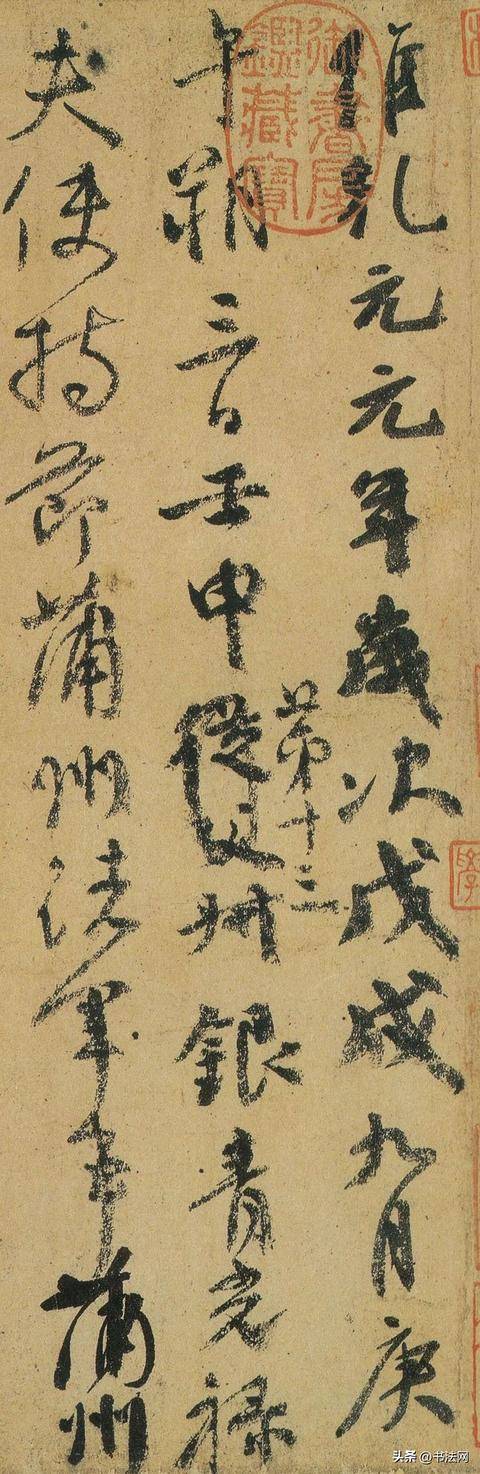 維乾元元年歲次戊戌九月庚
午朔三日壬申從父叔銀青光祿
第十三
夫使持節蒲州諸軍事蒲州
御書房
鑑藏寶
头条 @书法网